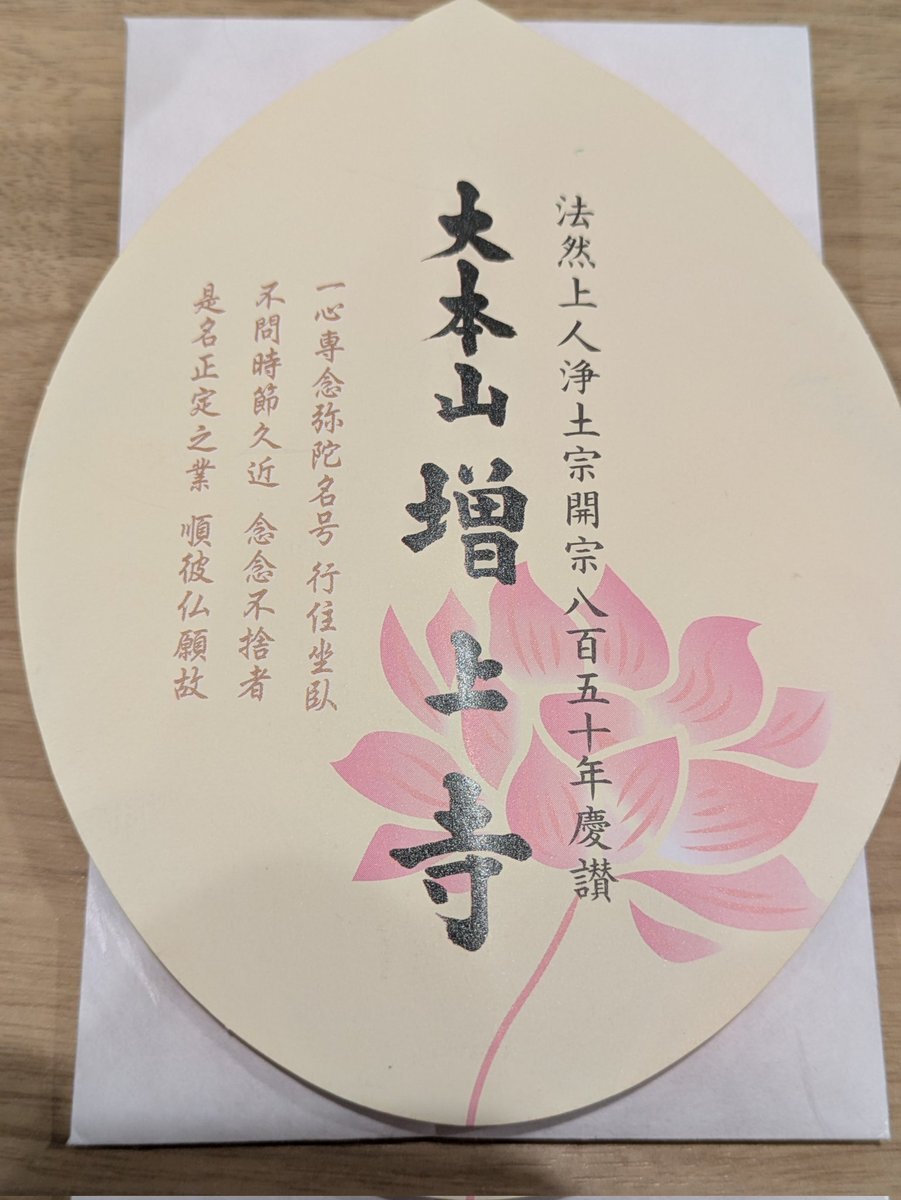 法然上人浄土宗開宗八百五十年慶讃
大本山 増上寺
一心専念弥陀名号 行住坐臥
不問時節久近 念念不捨者
是名正定之業 順彼仏願故